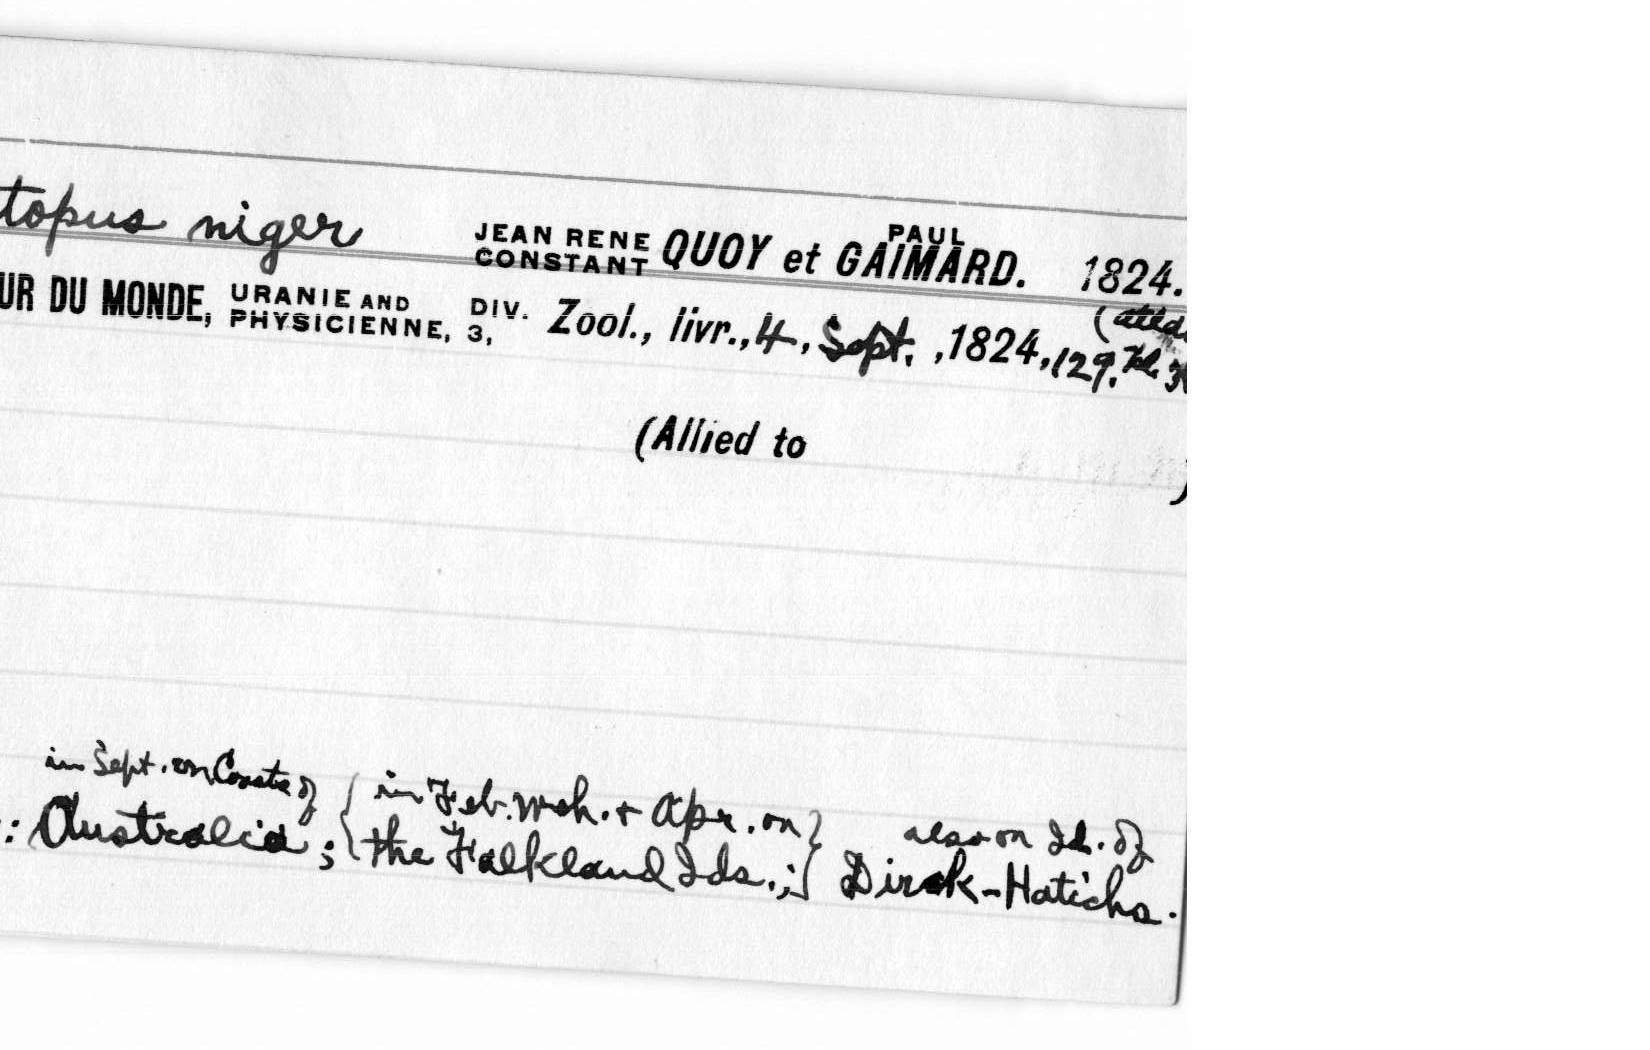 topus niger JEAN RENE CONSTANT QUOY et PAUL GAIMARD. 1824.
UR DU MONDE, URANIE AND PHYSICIENNE, DIV. 3, Zool., livr., 4, Sept. ,1824, 129, Pl.
(Allied to )
in Sept. on Coasts of { in Feb. Mch. + Apr. on } also on Id. of
: Australia ; { the Falkland Ids. ; } Dirck-Hatichs.